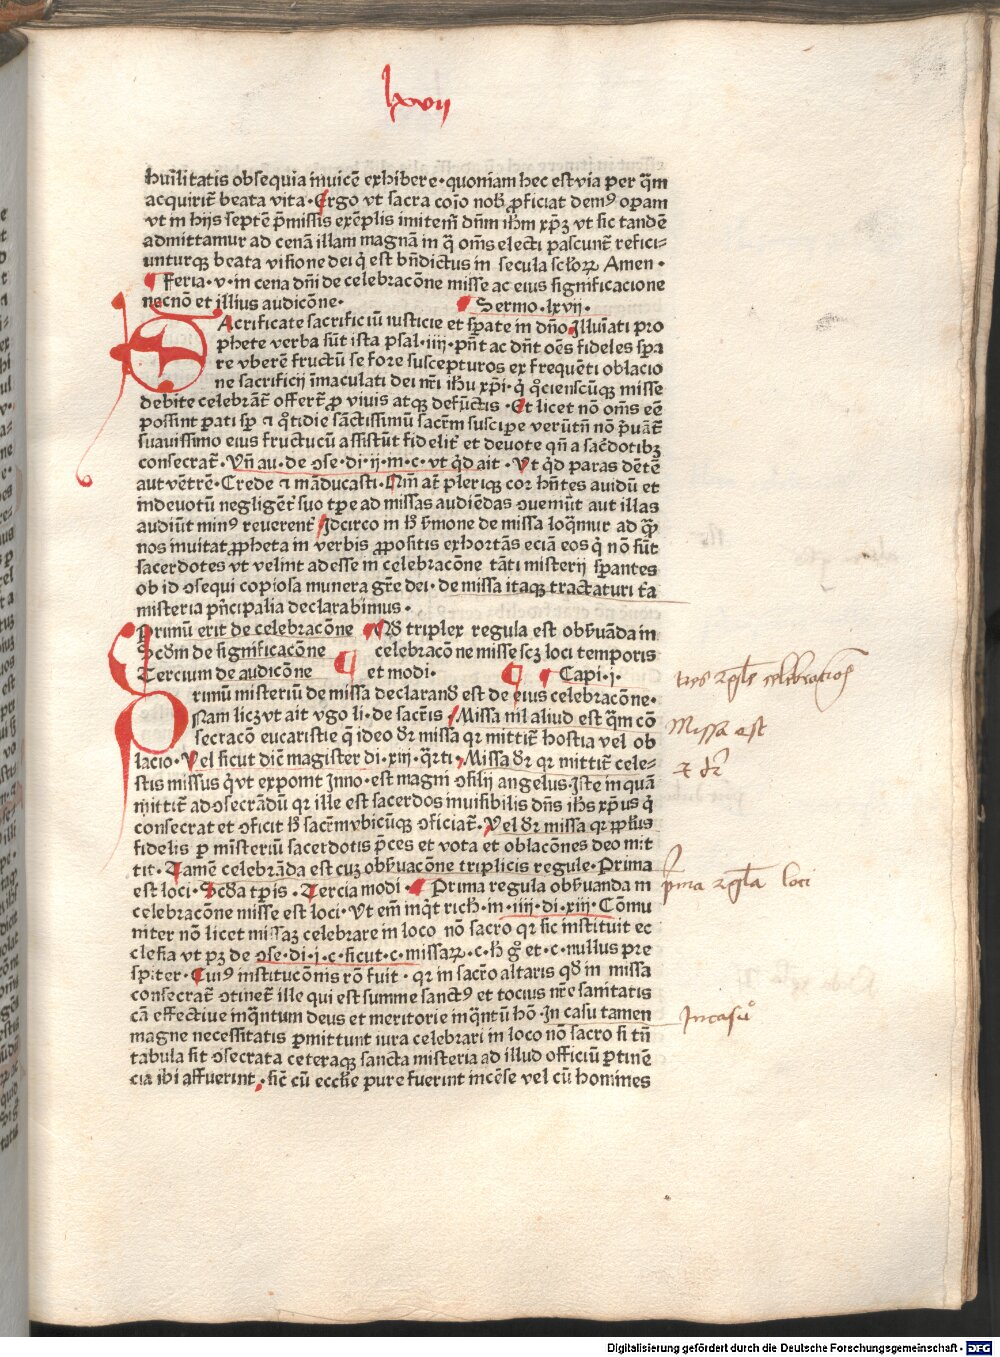 lxvii
hūilitatis obsequia invicē exhibere · quoniam hec est via per q̄m
acquirit̄ beata vita · Ergo vt sacra coīo nob̄ proficiat demꝰ opam
vt in hijs septē p̄missis exēplis imitem̄ dn̄m ih̄m xp̄ꝫ vt sic tandē
admittamur ad cenā illam magnā in q̄ om̄s electi pascunt̄ refici⸗
unturqꝫ beata visione dei q̇ est bn̄dictus in secula sclōꝝ Amen ·
Feria · v · in cena dn̄i de celebracōne misse ac eius significacione
necnō et illius audicōne · Sermo · lxvii ·
Acrificate sacrificiū iusticie et sp̄ate in dn̄o Illuīati pro
phete verba sūt ista psal · iiij · pn̄t ac dn̄t oēs fideles sp̄a
re vberē fructū se fore suscepturos ex frequēti oblacio
ne sacrificij īmaculati dei nr̄i ih̄u xp̄i · q̇ q̊ciēscūqꝫ misse
debite celebrāt̄ offert̄ ꝓ viuis atqꝫ defūctis · Et licet nō om̄s eē
possint pati sp̄ ⁊ q̊tidie sāctissimū sacr̄m suscipe verūtn̄ nō p̄uāt̄
suauissimo eius fructu cū assistūt fidelit̄ et deuote qn̄ a sac̄dotibꝫ
consecrat̄ · Vn̄ au · de ↄse · di · ij · m · c · vt q̇d ait · Vt q̇d paras dētē
aut vētrē · Crede ⁊ māducasti · Nm̄ at̄ pleriqꝫ cor hn̄tes auidū et
indeuotū negligent̄ suo tp̄e ad missas audiēdas ↄueniūt aut illas
audiūt minꝰ reuerent̄ Idcirco in h̄ s̄mone de missa loq̄mur ad q̄ꝫ
nos inuitat ꝓpheta in verbis ꝓpositis exhortās eciā eos q̇ nō sūt
sacerdotes vt velint adesse in celebracōne tāti misterij sp̄antes
ob id ↄsequi copiosa munera gr̄e dei · de missa itaqꝫ tractaturi t̄a
misteria pn̄cipalia declarabimus ·
Primū erit de celebracōne Nō triplex regula est obs̄uāda in
Sc̄dm de significacōne celebracōne misse scꝫ loci temporis
Tercium de audicōne et modi · Capi · j ·
rimū misteriū de missa declarand̄ est de eius celebracōne ·
Nam licꝫ vt ait vgo li · de sacr̄is · Missa nil aliud est q̄m cō
secracō eucaristie q̄ ideo dr̄ missa qr mittit̄ hostia vel ob
lacio · Vel sicut dic̄ magister di · xiij · q̄rti · Missa dr̄ qr mittit̄ cele⸗
stis missus q̇ vt exponit Inno · est magni ↄsilij angelus · Iste in quā
mittit̄ ad ↄsecrādū qr ille est sacerdos inuisibilis dn̄s ih̄s xp̄us q̇
consecrat et ↄficit h̄ sacr̄m vbicūqꝫ ↄficiat̄ · Vel dr̄ missa qr pp̄lus
fidelis p misteriū sacerdotis p̄ces et vota et oblacōnes deo mit
tit · Tamē celebrāda est cuꝫ obs̄uacōne triplicis regule · Prima
est loci · Sc̄da tp̄is · Tercia modi · Prima regula obs̄uanda in
celebracōne misse est loci · Vt em̄ inq̇t rich̄ · in · iiij · di · xiii · Cōmu
niter nō licet missaꝫ celebrare in loco nō sacro qr sic instituit ec
clesia vt pꝫ de ↄse · di · i · c · sicut · c · missaꝝ · c · h̄ g̊ et · c · nullus pre
spiter · Cuiꝰ institucōnis rō fuit · qr in sacr̄o altaris qd̄ in missa
consecrat̄ ↄtinet̄ ille qui est summe sanctꝰ et tocius nr̄e sanitatis
cā effectiue inq̄ntum deus et meritorie inq̄ntū hō · In casu tamen
magne necessitatis pmittunt iura celebrari in loco nō sacro si tn̄
tabula sit ↄsecrata ceteraqꝫ sancta misteria ad illud officiū ptinē
cia ibi affuerint · sic̄ cū eccl̄ie pure fuerint incēse vel cū homines
tres regule celebracionis
Missa est
⁊ dr̄
prima regula loci
In casu